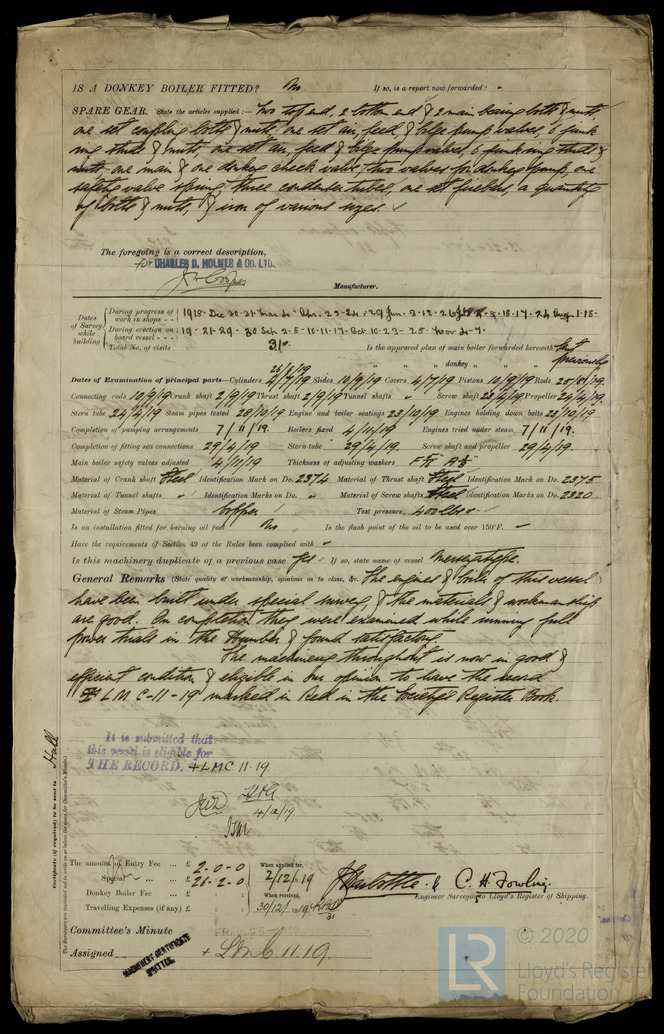 IS A DONKEY BOILER FITTED? No If so, is a report now forwarded? -
SPARE GEAR. State the articles supplied:— Two top end, 2 bottom end & 2 main bearing bolts & nuts,
one set coupling bolts & nuts, one set air, feed, & bilge pump valves, 6 junk
ring studs & nuts, one set air, feed & bilge pump valves, 6 junk ring studs &
nuts, one main & one donkey check valve, two valves for donkey pump, one
safety valve spring, three condenser tubes, one set firebars, a quantity
of bolts & nuts, & iron of various sizes. ✓
The foregoing is a correct description,
for CHARLES D. HOLMES & CO. LTD.
Manufacturer.
Dates of Survey while building
During progress of work in shops - - 1918. Dec 30. 31.
During erection on board vessel - - - 19. 21. 29. 30 Sep 2. 5. 10. 11. 17. Oct 10. 23. 28. Nov 4. 7.
Total No. of visits 31. Is the approved plan of main boiler forwarded herewith
" " " donkey " "
26/6/19
Dates of Examination of principal parts—Cylinders 2/7/19 Slides 10/9/19 Covers 4/7/19 Pistons 10/9/19 Rods 25/8/19.
Connecting rods 10/9/19 Crank shaft 2/9/19 Thrust shaft 2/9/19 Tunnel shafts " Screw shaft 23/4/19 Propeller 24/4/19.
Stern tube 24/4/19 Steam pipes tested 28/10/19 Engine and boiler seatings 23/10/19 Engines holding down bolts 23/10/19
Completion of pumping arrangements 7/11/19. Boilers fixed 4/10/19 Engines tried under steam 7/11/19.
Completion of fitting sea connections 29/4/19 Stern tube 29/4/19. Screw shaft and propeller 29/4/19.
Main boiler safety valves adjusted 4/11/19 Thickness of adjusting washers
Material of Crank shaft Steel Identification Mark on Do. 2374 Material of Thrust shaft Steel Identification Mark on Do. 2375
Material of Tunnel shafts " Identification Marks on Do. " Material of Screw shafts Steel Identification Marks on Do. 2320.
Material of Steam Pipes Copper Test pressure 400 lbs.
Is an installation fitted for burning oil fuel No Is the flash point of the oil to be used over 150°F. ✓
Have the requirements of Section 49 of the Rules been complied with ✓
Is this machinery duplicate of a previous case Yes If so, state name of vessel Mersey type.
General Remarks (State quality of workmanship, opinions as to class, &c. The engines & boiler of this vessel
have been built under special survey, & the materials & workmanship
are good. On completion they were examined while running full
power trials in the Humber & found satisfactory.
The machinery throughout is now in good &
efficient condition & eligible in our opinion to have the record
LMC-11-19 marked in Red in the Society's Register Book.
It is submitted that
this vessel is eligible for
THE RECORD. +LMC 11.19
4/12/19
Certificate (if required) to be sent to Hull
The amount of Entry Fee ... £ 2.0.0 When applied for,
Special ... £ 26.2.0 2/12/19
Donkey Boiler Fee ... £ When received,
Travelling Expenses (if any) £ 30/12/1919
& C. H. Fowling.
Engineer Surveyor to Lloyd's Register of Shipping.
Committee's Minute
Assigned + LMC 11.19.
MACHINERY CERTIFICATE
WRITTEN.
LR © 2020
Lloyd's Register
Foundation